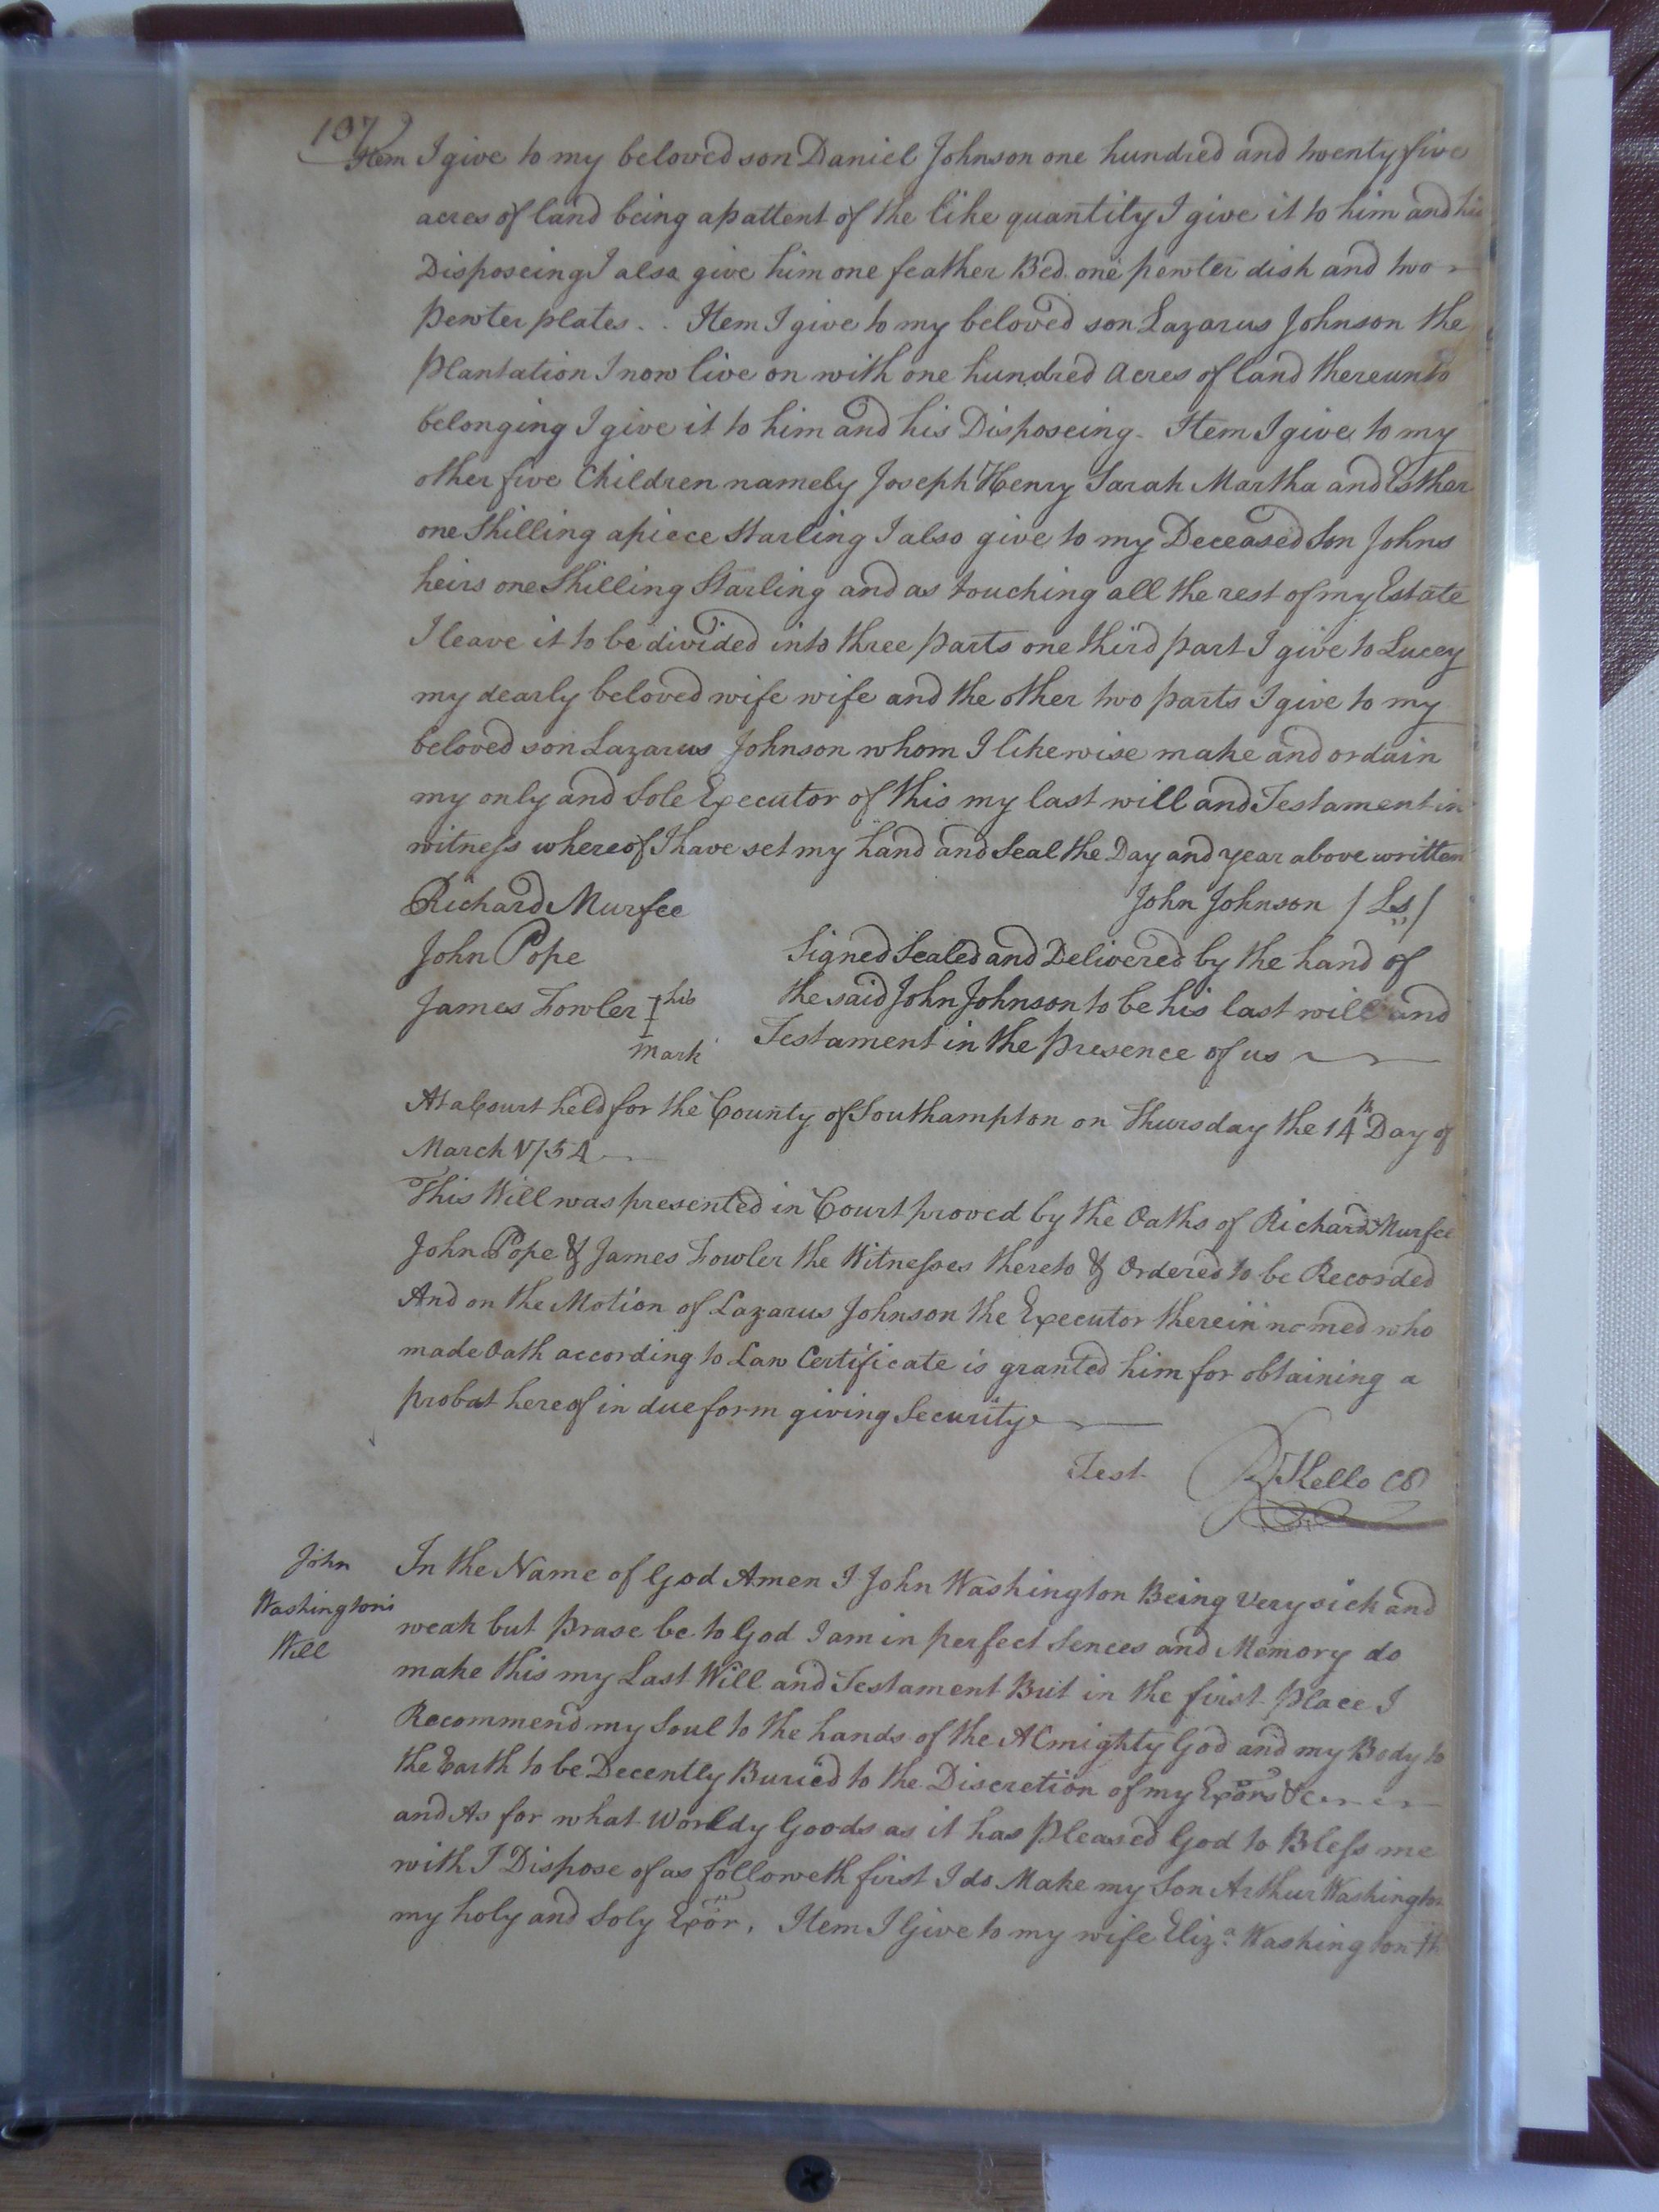 107
Item I give to my beloved son Daniel Johnson one hundred and twenty five
acres of land being a pattent of the like quantity I give it to him and his
Disposeing I also give him one feather Bed one pewter dish and two
pewter plates . . Item I give to my beloved son Lazarus Johnson the
plantation I now live on with one hundred acres of land thereunto
belonging I give it to him and his Disposeing - Item I give to my
other five Children namely Joseph Henry Sarah Martha and Esther
one Shilling apiece Starling I also give to my Deceased Son Johns
heirs one Shilling Starling and as touching all the rest of my Estate
I leave it to be divided into three parts one third part I give to Lucey
my dearly beloved wife wife and the other two parts I give to my
beloved son Lazarus Johnson whom I likewise make and ordain
my only and Sole Executor of this my last will and Testament in
witness whereof I have set my hand and Seal the Day and year above written
Richard Murfee John Johnson / Ls /
John Pope Signed Sealed and Delivered by the hand of
James Fowler I his the said John Johnson to be his last will and
mark Testament in the presence of us
At a Court held for the County of Southampton on Thursday the 14th Day of
March 1754
This Will was presented in Court proved by the Oaths of Richard Murfee
John Pope & James Fowler the Witnesses thereto & Ordered to be Recorded
And on the Motion of Lazarus Johnson the Executor therein named who
made Oath according to Law Certificate is granted him for obtaining a
probat hereof in due form giving Security
Test Kello
John
Washington's
Will
In the Name of God Amen I John Washington Being Very sick and
weak but Prase be to God I am in perfect Sences and Memory do
make this my Last Will and Testament But in the first Place I
Recommend my Soul to the hands of the Almighty God and my Body to
the Earth to be Decently Buried to the Discretion of my Exors &c
and As for what Worldy Goods as it has Pleased God to Bless me
with I Dispose of as followeth first I do Make my Son Arthur Washington
my holy and Soly Exor. Item I Give to my wife Eliza. Washington